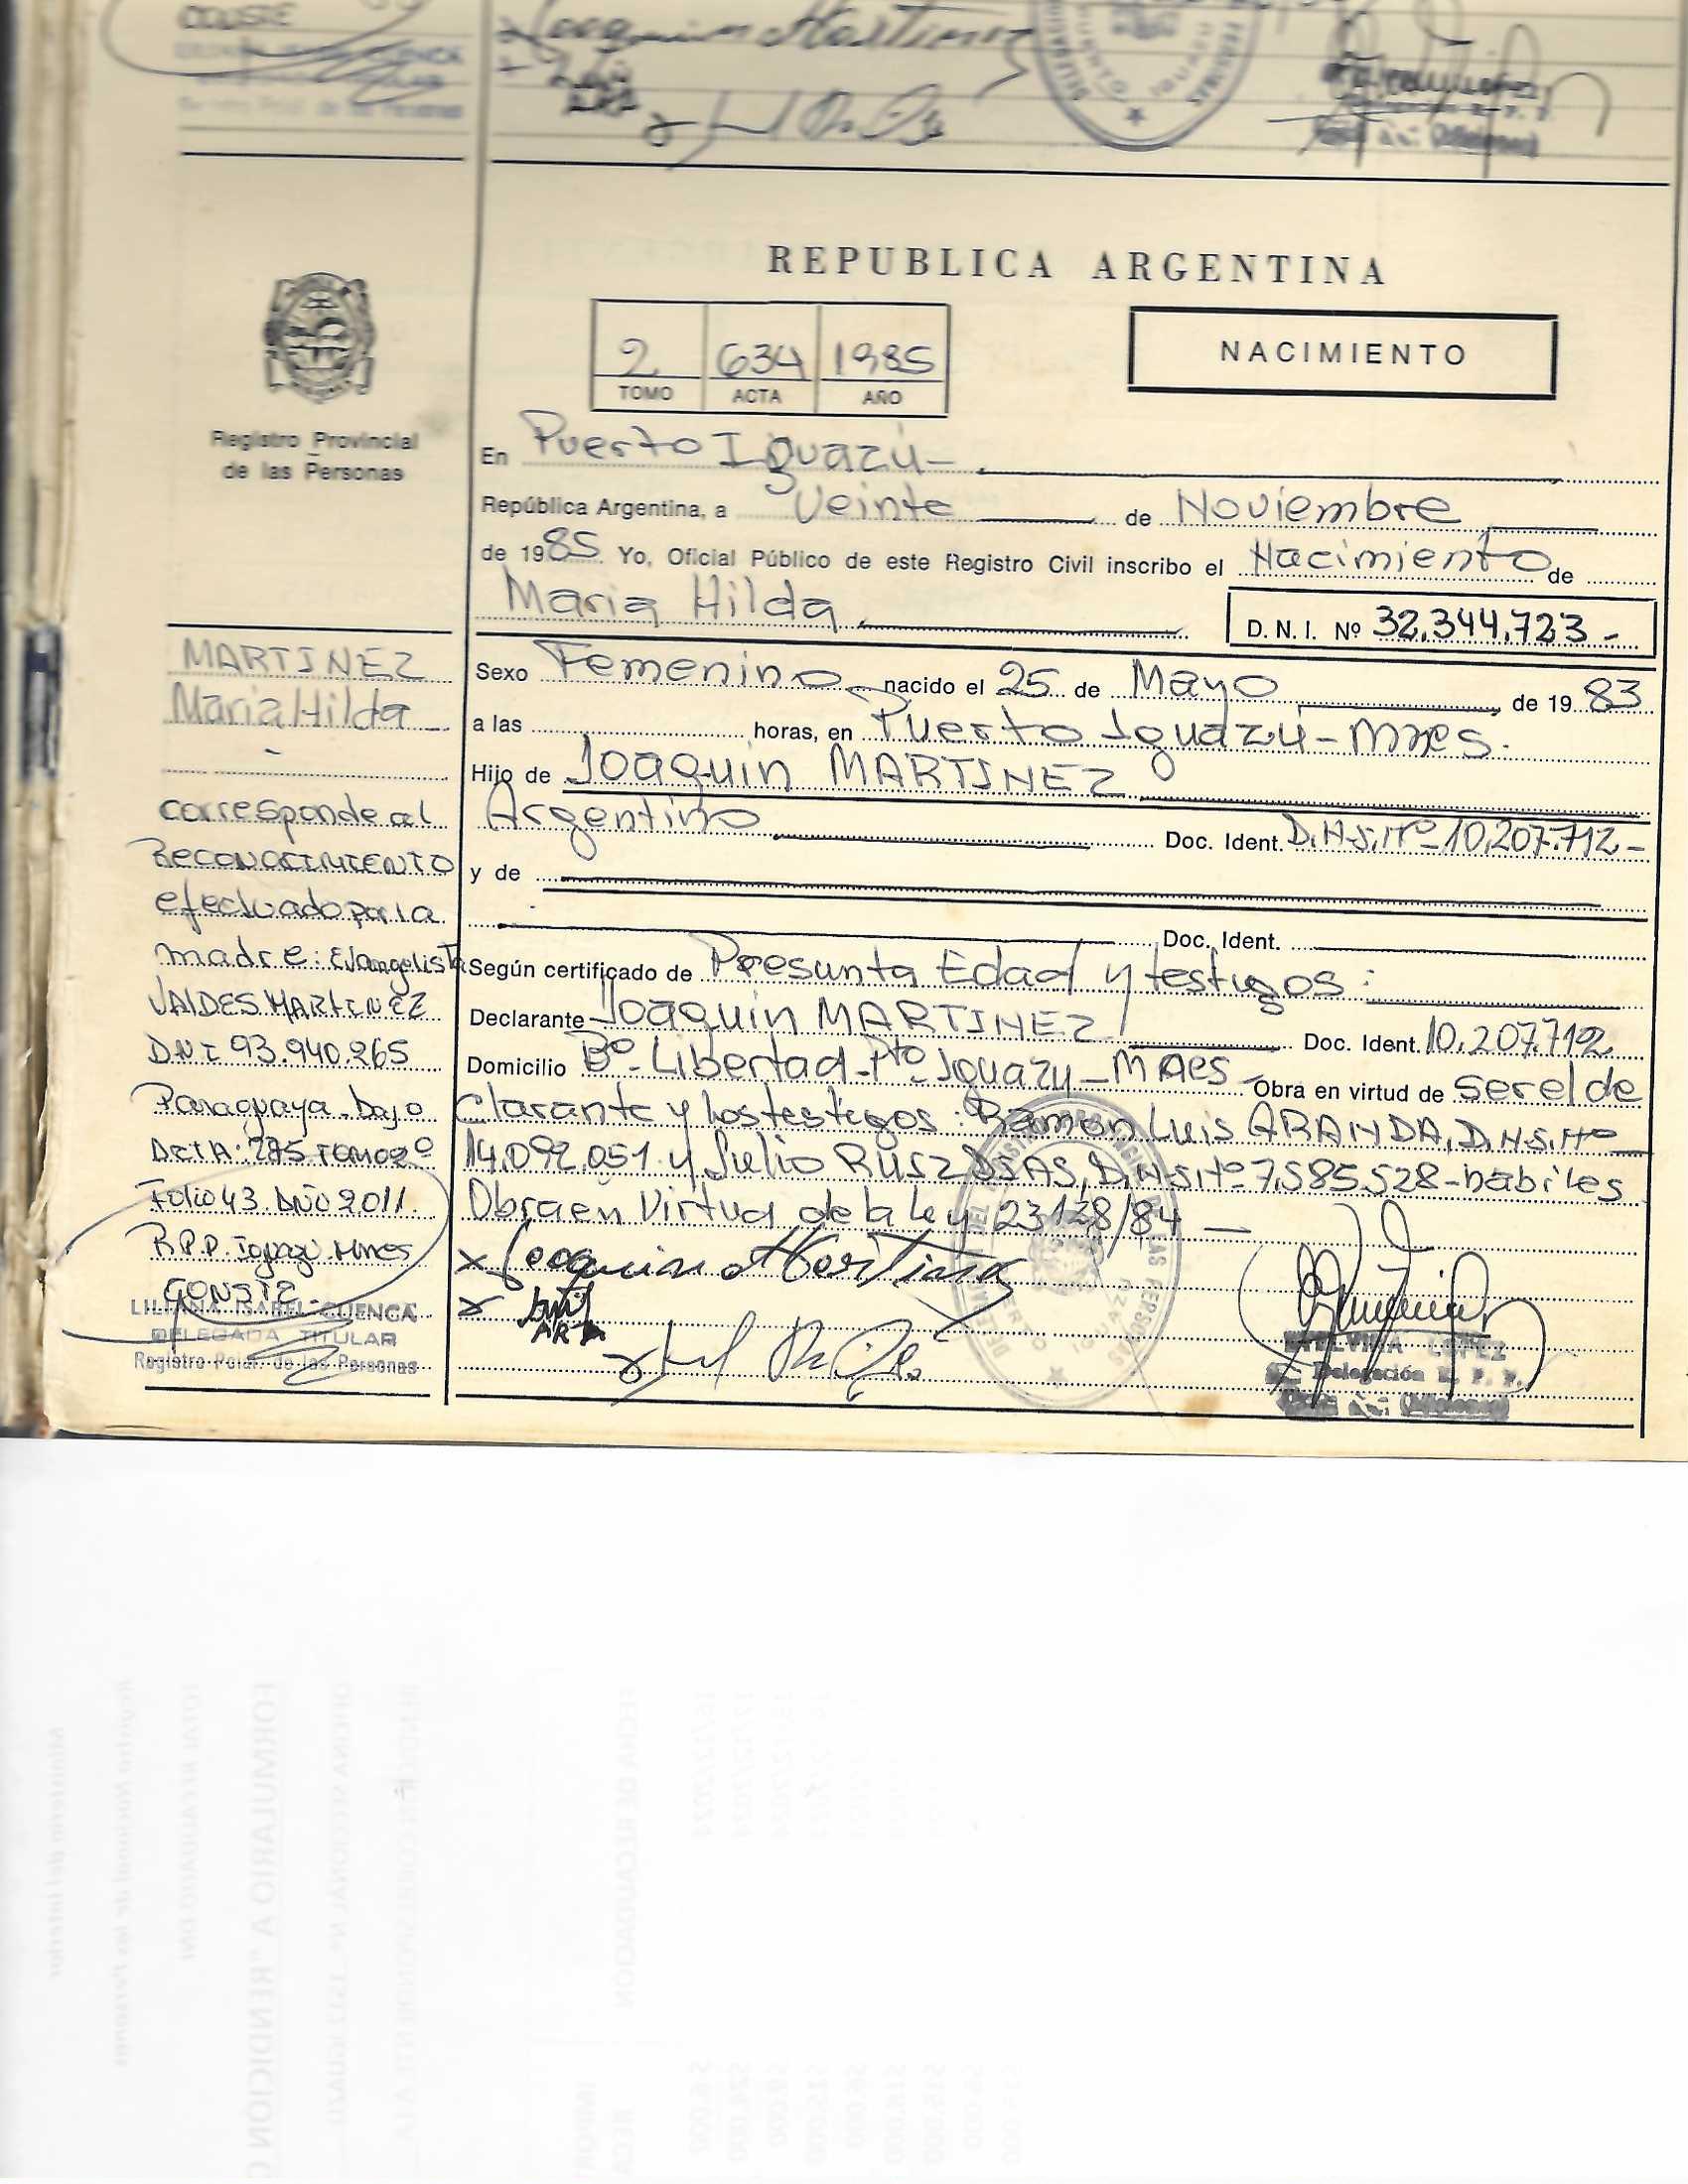 Joaquin Martinez
REPUBLICA ARGENTINA
2 634 1985
TOMO ACTA AÑO
NACIMIENTO
Registro Provincial
de las Personas
En Puerto Iguazú-
República Argentina, a Veinte de Noviembre
de 1985 Yo, Oficial Público de este Registro Civil inscribo el Nacimiento de
Maria Hilda
D. N. I. Nº 32.344.723-
MARTINEZ
Maria Hilda
-
corresponde al
RECONOCIMIENTO
efectuado por la
madre: Evangelista
VALDES MARTINEZ
D.N.I 93.940.265
Paraguaya-bajo
ActA: 275 Tomo 2º
Folio 43. Año 2011.
R.P.P. Iguazú Mnes
CONSTE.
LILIANA ISABEL CUENCA
DELEGADA TITULAR
Registro Pcial. de las Personas
Sexo Femenino nacido el 25 de Mayo de 1983
a las horas, en Puerto Iguazú-Mnes.
Hijo de Joaquin MARTINEZ
Argentino Doc. Ident. D.N.I.Nº-10.207.712-
y de
Doc. Ident.
Según certificado de Presunta Edad y testigos:
Declarante Joaquin MARTINEZ Doc. Ident. 10.207.712
Domicilio Bº-Libertad-Pto-Iguazu-Mnes- Obra en virtud de ser el de
clarante y los testigos: Ramon Luis ARANDA, D.N.I.Nº
14.092.051 y Julio D.N.I.Nº 7.585.528-habiles
Obra en Virtud de la Ley 23128/84
x Joaquin Martinez
x
ETELVINA LOPEZ
Delegación R. P. P.
(Misiones)